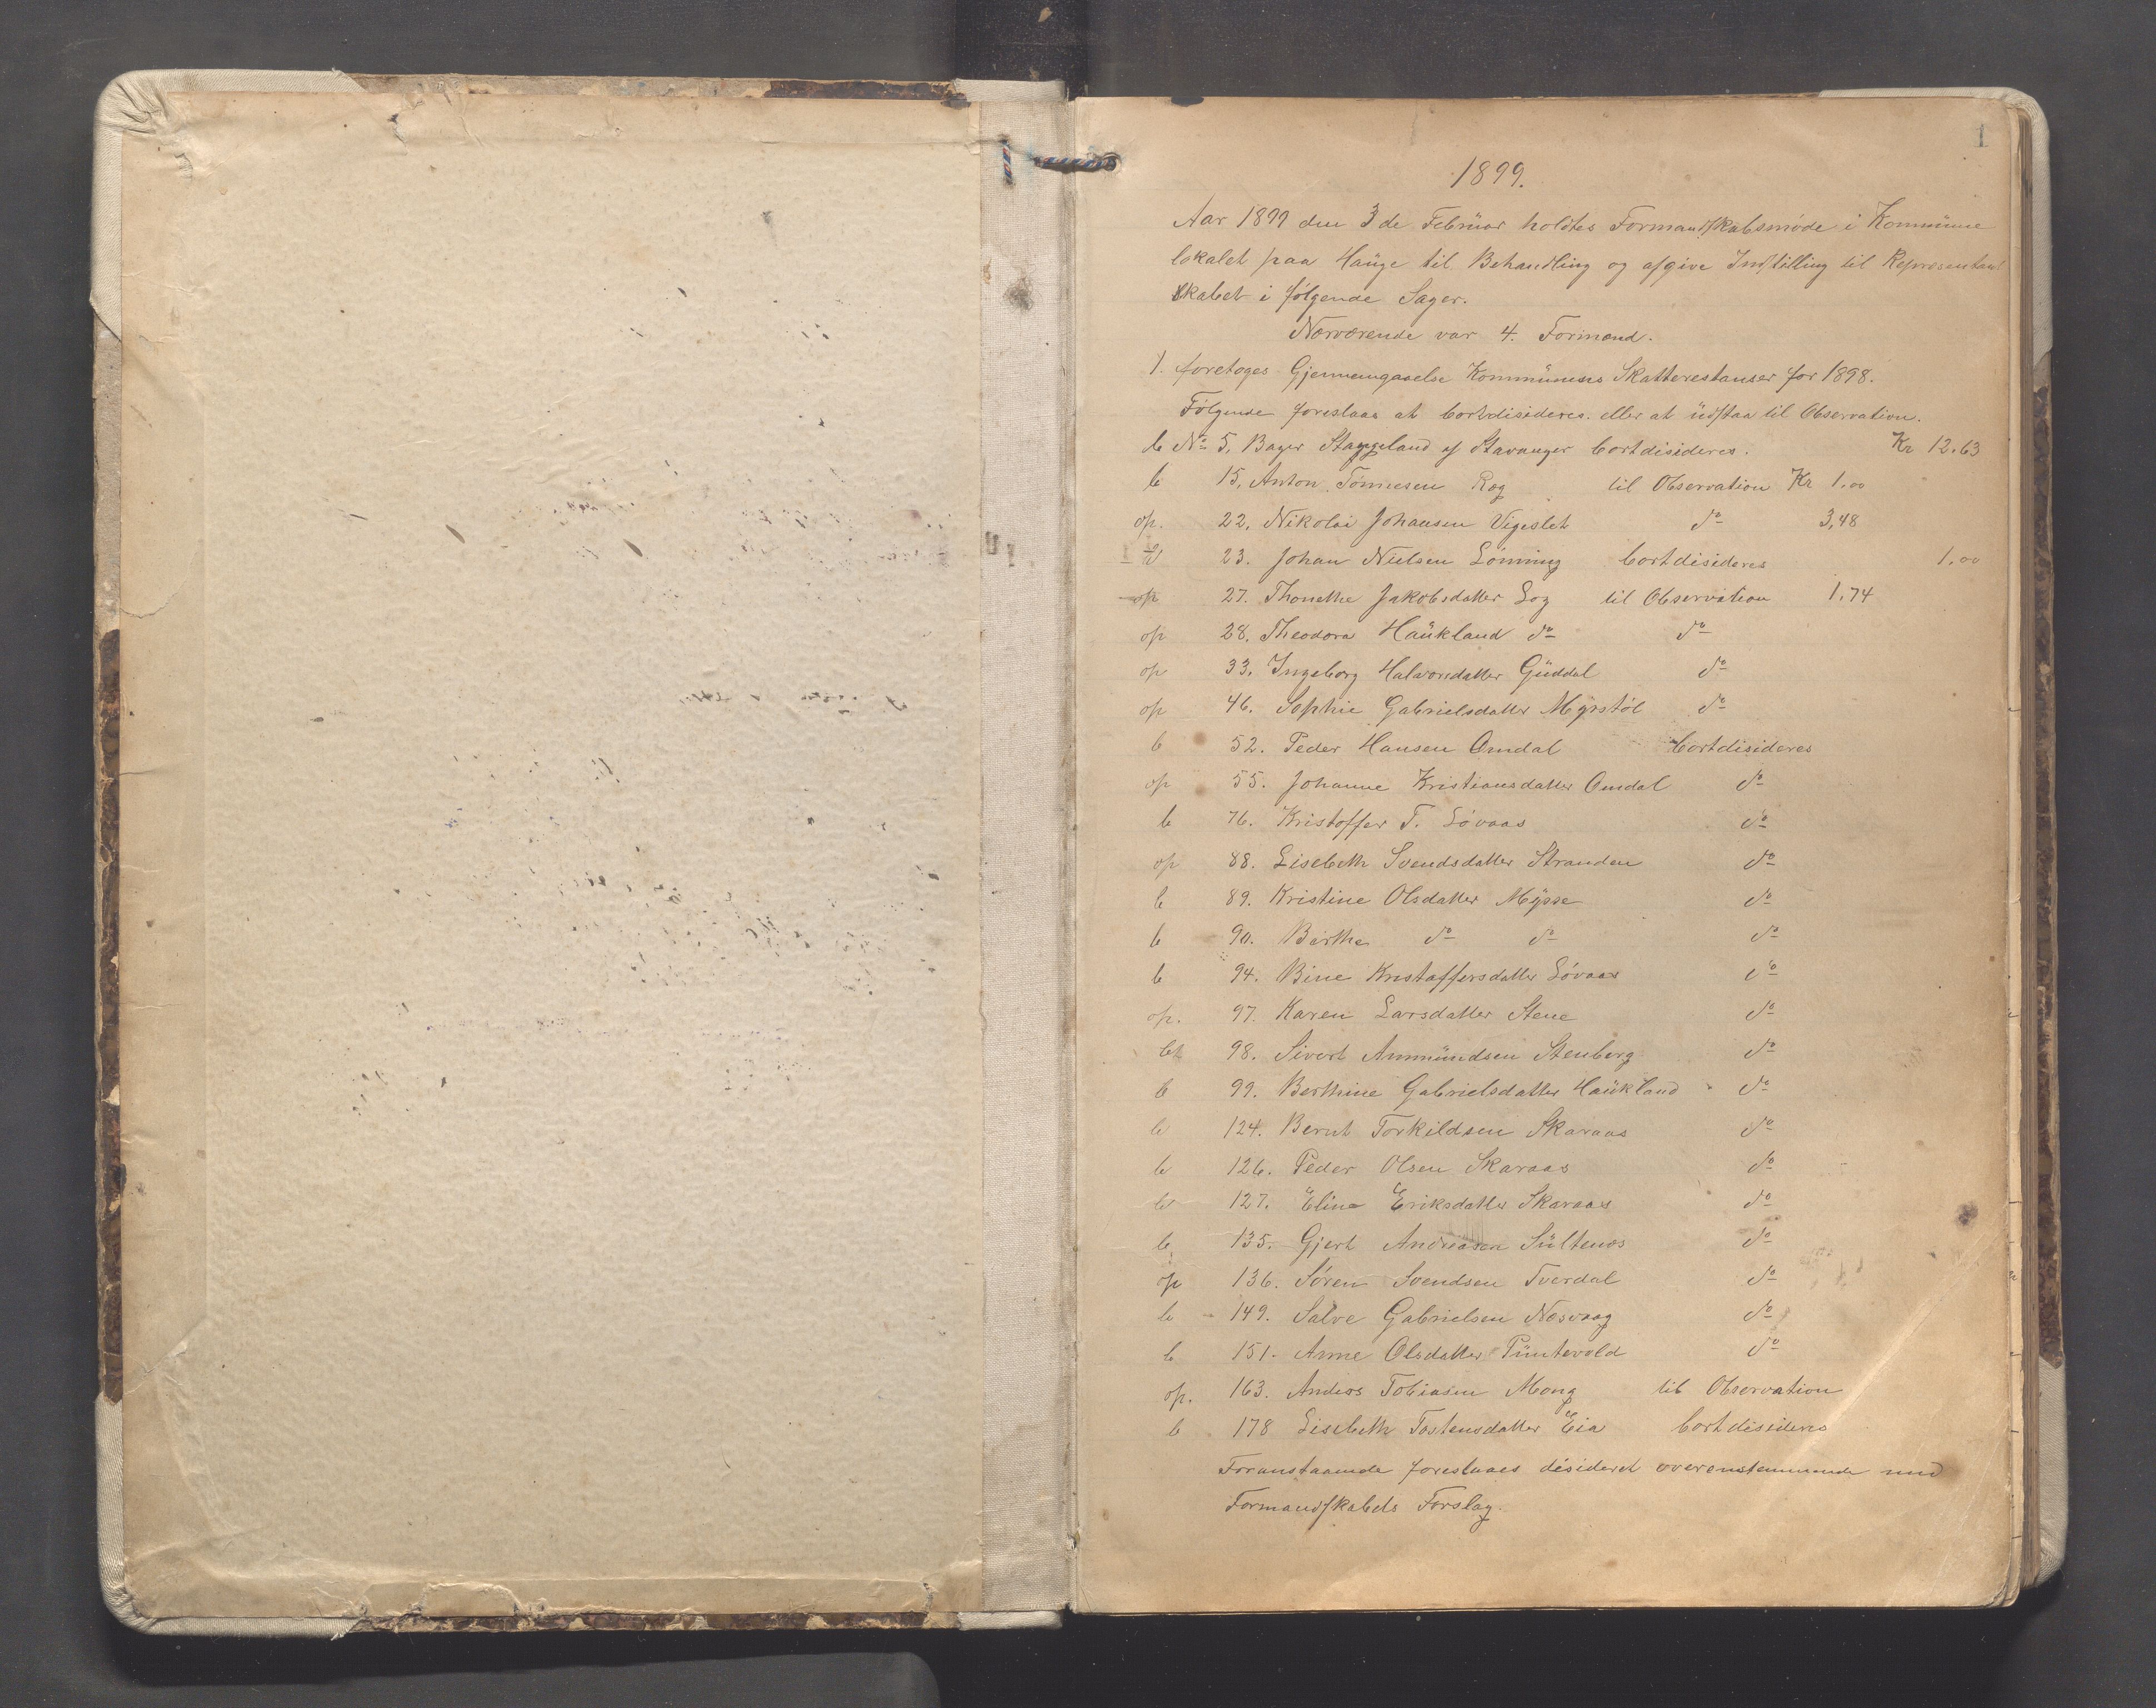 1
1899.
Aar 1899 den 3de Februar holdtes Formandskabsmøde i Kommune
lokalet paa Hauge til Behandling og afgive Indstilling til Representant
skabet i følgende Sager.
Nærværende var 4. Formænd.
1. foretoges Gjennemgaaelse Kommunens Skatterestanser for 1898.
Følgende foreslaas at bortdisideres. eller at udstaa til Observation.
b No 5. Bager Staggeland af Stavanger bortdisideres. Kr 12.63
b 15. Anton Tønnesen Røg til Observation Kr 1.00
op. 22. Nikolai Johansen Vigeslet do 3,48
23. Johan Nielsen Lønning bortdisideres 1.00
op 27. Thonethe Jakobsdatter Log til Observation 1.74
op 28. Theodora Haukland do do
op 33. Ingeborg Halvorsdatter Guddal do
op 46. Sophie Gabrielsdatter Myrstøl do
b 52. Peder Hansen Omdal bortdisideres
op 55. Johanne Kristiansdatter Omdal do
b 76. Kristoffer T. Løvaas do
op 88. Lisebeth Svendsdatter Stranden do
b 89. Kristine Olsdatter Mysse do
b 90. Berthe do do do
b 94. Bine Kristoffersdatter Løvaas do
op. 97. Karen Larsdatter Stene do
98. Sivert Ammundsen Stenberg do
b 99. Berthine Gabrielsdatter Haukland do
b 124. Bernt Torkildsen Skaraas do
b 126. Peder Olsen Skaraas do
b 127. Eline Eriksdatter Skaraas do
b 135. Gjert Andreasen Sultenæs do
op 136. Søren Svendsen Tverdal do
b 149. Salve Gabrielsen Nesvaag do
b 151. Anne Olsdatter Puntevold do
op. 163. Andres Tobiasen Mong til Observation
b 178 Lisebeth Tostensdatter Eia bortdisideres
Foranstaaende foreslaaes disideret overenstemmende med
Formandskabets Forslag.